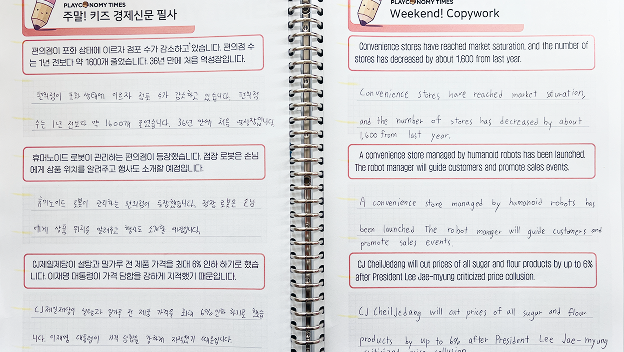 PLAYCONOMY TIMES
주말! 키즈 경제신문 필사
편의점이 포화 상태에 이르자 점포 수가 감소하고 있습니다. 편의점 수
는 1년 전보다 약 1600개 줄었습니다. 36년 만에 처음 역성장입니다.
편의점이 포화 상태에 이르자 점포 수가 감소하고 있습니다. 편의점
수는 1년 전보다 약 1600개 줄었습니다. 36년 만에 처음 역성장입니다.
휴머노이드 로봇이 관리하는 편의점이 등장했습니다. 점장 로봇은 손님
에게 상품 위치를 알려주고 행사도 소개할 예정입니다.
휴머노이드 로봇이 관리하는 편의점이 등장했습니다. 점장 로봇은 손님
에게 상품 위치를 알려주고 행사도 소개할 예정입니다.
CJ제일제당이 설탕과 밀가루 전 제품 가격을 최대 6% 인하 하기로 했습
니다. 이재명 대통령이 가격 담합을 강하게 지적했기 때문입니다.
CJ제일제당이 설탕과 밀가루 전 제품 가격을 최대 6% 인하 하기로 했습
니다. 이재명 대통령이 가격 담합을 강하게 지적했기 때문입니다.
PLAYCONOMY TIMES
Weekend! Copywork
Convenience stores have reached market saturation, and the number of
stores has decreased by about 1,600 from last year.
Convenience stores have reached market saturations,
and the number of stores has decreased by about
1,600 from last year.
A convenience store managed by humanoid robots has been launched.
The robot manager will guide customers and promote sales events.
A convenience store managed by humanoid robots has
been launched The robot manger will guide customers and
promote sales events.
CJ CheilJedang will cut prices of all sugar and flour products by up to 6%
after President Lee Jae-myung criticized price collusion.
CJ CheilJedang will cut prices of all sugar and flour
products by up to 6% after President Lee Jae-myung
criticized price collusion